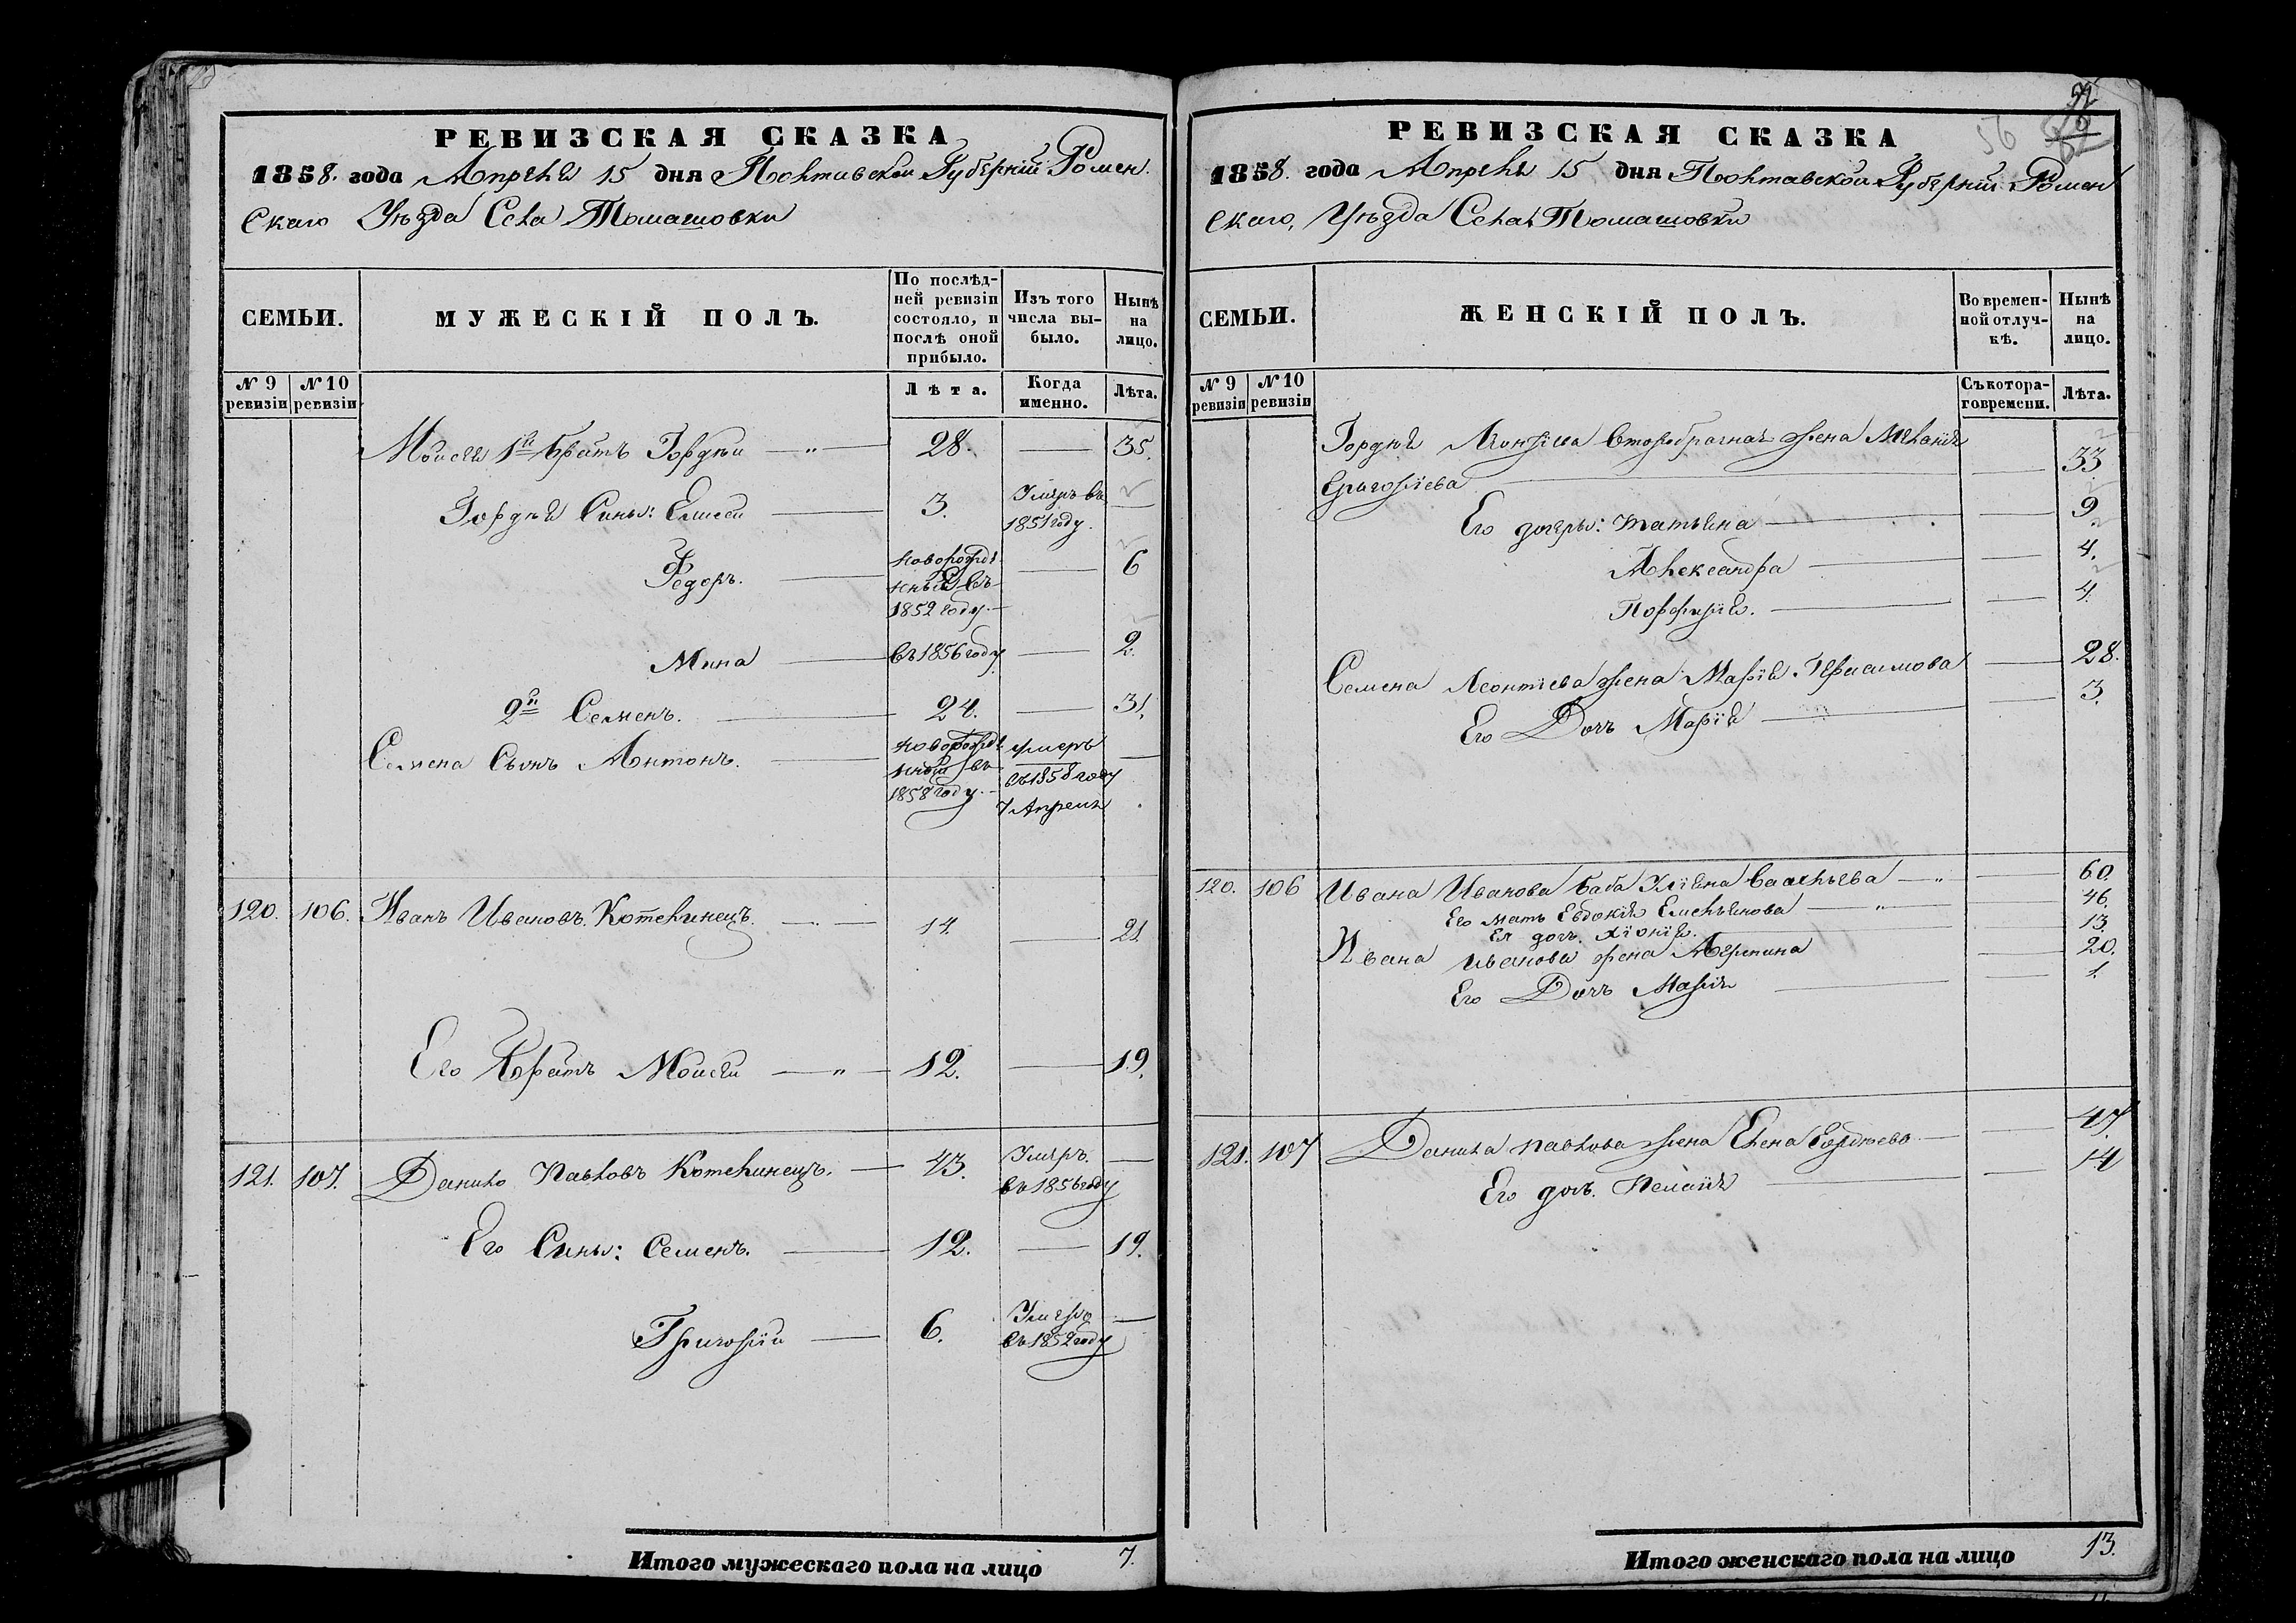 РЕВИЗСКАЯ СКАЗКА
1858. года Апреля 15 дня Полтавской Губерніи Ромен
скаго Уѣзда Села Томашовки
СЕМЬИ.
МУЖЕСКІЙ ПОЛЪ.
По послѣд-
ней ревизіи
состояло, и
послѣ оной
прибыло.
Изъ того
числа вы-
было.
Нынѣ
на
лицо.
№ 9 ревизіи
№ 10 ревизіи
Лѣта.
Когда именно.
Лѣта.
Моисея 1й братъ Гордѣй — „ — 28. — 35.
Гордѣя Сины: Елисей — 3. Умеръ въ 1851 году. —
Федоръ. — новорожде нный въ 1852 году. — 6
Мина — въ 1856 году — 2.
2й Семенъ. — 24. — 31.
Семена Сынъ Антонъ. — новорожде нный въ 1858 году. — умеръ въ 1858 году 7 Апреля —
120. 106. Иванъ Ивановъ Котелинецъ. — 14. — 21.
Его Братъ Моисей — „ — 12. — 19.
121. 107. Данило Павловъ Котелинецъ. — 43. Умеръ. въ 1856 году —
Его Сины: Семенъ. — 12. — 19.
Григорій — 6. Умеръ въ 1852 году —
Итого мужескаго пола на лицо 7.
56
РЕВИЗСКАЯ СКАЗКА
1858. года Апреля 15 дня Полтавской Губерніи Ромен
скаго, Уѣзда Села Томашовки
СЕМЬИ.
ЖЕНСКІЙ ПОЛЪ.
Во времен-
ной отлуч-
кѣ.
Нынѣ
на
лицо.
№ 9 ревизіи
№ 10 ревизіи
Съ котора-
го времени.
Лѣта.
Гордѣя Леонтіева второбрачная жена Меланія
Григоріева — 33.
Его дочеры: Татьяна — 9
Александра — 4.
Порфирія. — 4.
Семена Леонтіева жена Марія Герасимова — 28.
Его Дочъ Марія — 3.
120. 106 Ивана Иванова баба Уліяна Васильева — „ — 60.
Его мать Евдокія Емельянова — „ — 46.
Ея дочъ. Хіонія. — 13.
Ивана Иванова жена Агрипина — 20.
Его Дочъ Марія — 1.
121. 107 Данила Павлова жена Елена Гордѣева — 47.
Его дочъ. Пелагія — 14
Итого женскаго пола на лицо 13.